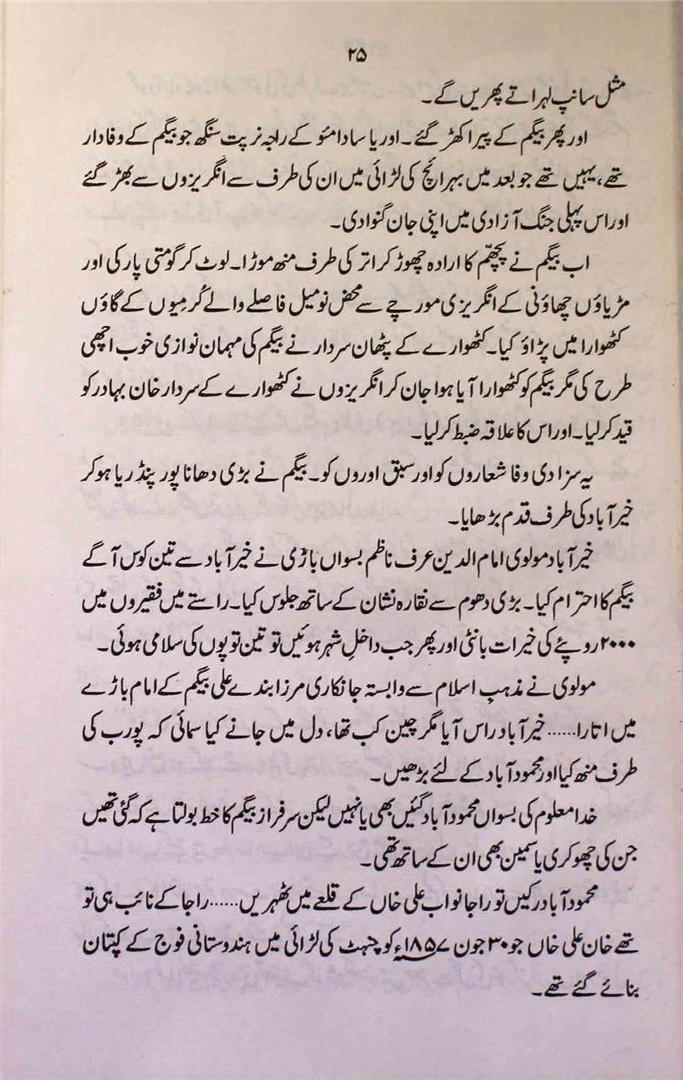 ۲۵
مثل سانپ لہراتے پھریں گے۔
اور پھر بیگم کے پیر اکھڑ گئے۔ اوریا سادامئو کے راجہ نرپت سنگھ جو بیگم کے وفادار
تھے، یہیں تھے جو بعد میں بہرائچ کی لڑائی میں ان کی طرف سے انگریزوں سے بھڑ گئے
اور اس پہلی جنگ آزادی میں اپنی جان گنوادی۔
اب بیگم نے پچھّم کا ارادہ چھوڑ کر اتر کی طرف منھ موڑا۔ لوٹ کر گومتی پار کی اور
مڑیاؤں چھاؤنی کے انگریزی مورچے سے محض نو میل فاصلے والے کُرمِیوں کے گاؤں
کٹھوارا میں پڑاؤ کیا۔ کٹھوارے کے پٹھان سردار نے بیگم کی مہمان نوازی خوب اچھی
طرح کی مگر بیگم کو کٹھوارا آیا ہوا جان کر انگریزوں نے کٹھوارے کے سردار خان بہادر کو
قید کر لیا۔ اور اس کا علاقہ ضبط کر لیا۔
یہ سزا دی وفا شعاروں کو اور سبق اوروں کو۔ بیگم نے بڑی دھانا پور پنڈریا ہو کر
خیر آباد کی طرف قدم بڑھایا۔
خیر آباد مولوی امام الدین عرف ناظم بسواں باڑی نے خیر آباد سے تین کوس آگے
بیگم کا احترام کیا۔ بڑی دھوم سے نقارہ نشان کے ساتھ جلوس کیا۔ راستے میں فقیروں میں
۲۰۰۰ روپئے کی خیرات بانٹی اور پھر جب داخلِ شہر ہوئیں تو تین توپوں کی سلامی ہوئی۔
مولوی نے مذہبِ اسلام سے وابستہ جانکاری مرزا بندے علی بیگم کے امام باڑے
میں اتارا...... خیر آباد راس آیا مگر چین کب تھا، دل میں جانے کیا سمائی کہ پورب کی
طرف منھ کیا اور محمود آباد کے لئے بڑھیں۔
خدا معلوم کی بسواں محمود آباد گئیں بھی یا نہیں لیکن سرفراز بیگم کا خط بولتا ہے کہ گئی تھیں
جن کی چھوکری یاسمین بھی ان کے ساتھ تھی۔
محمود آباد رکیں تو راجا نواب علی خاں کے قلعے میں ٹھہریں...... راجا کے نائب ہی تو
تھے خان علی خاں جو ۳۰ جون ۱۸۵۷ء کو چنہٹ کی لڑائی میں ہندوستانی فوج کے کپتان
بنائے گئے تھے۔